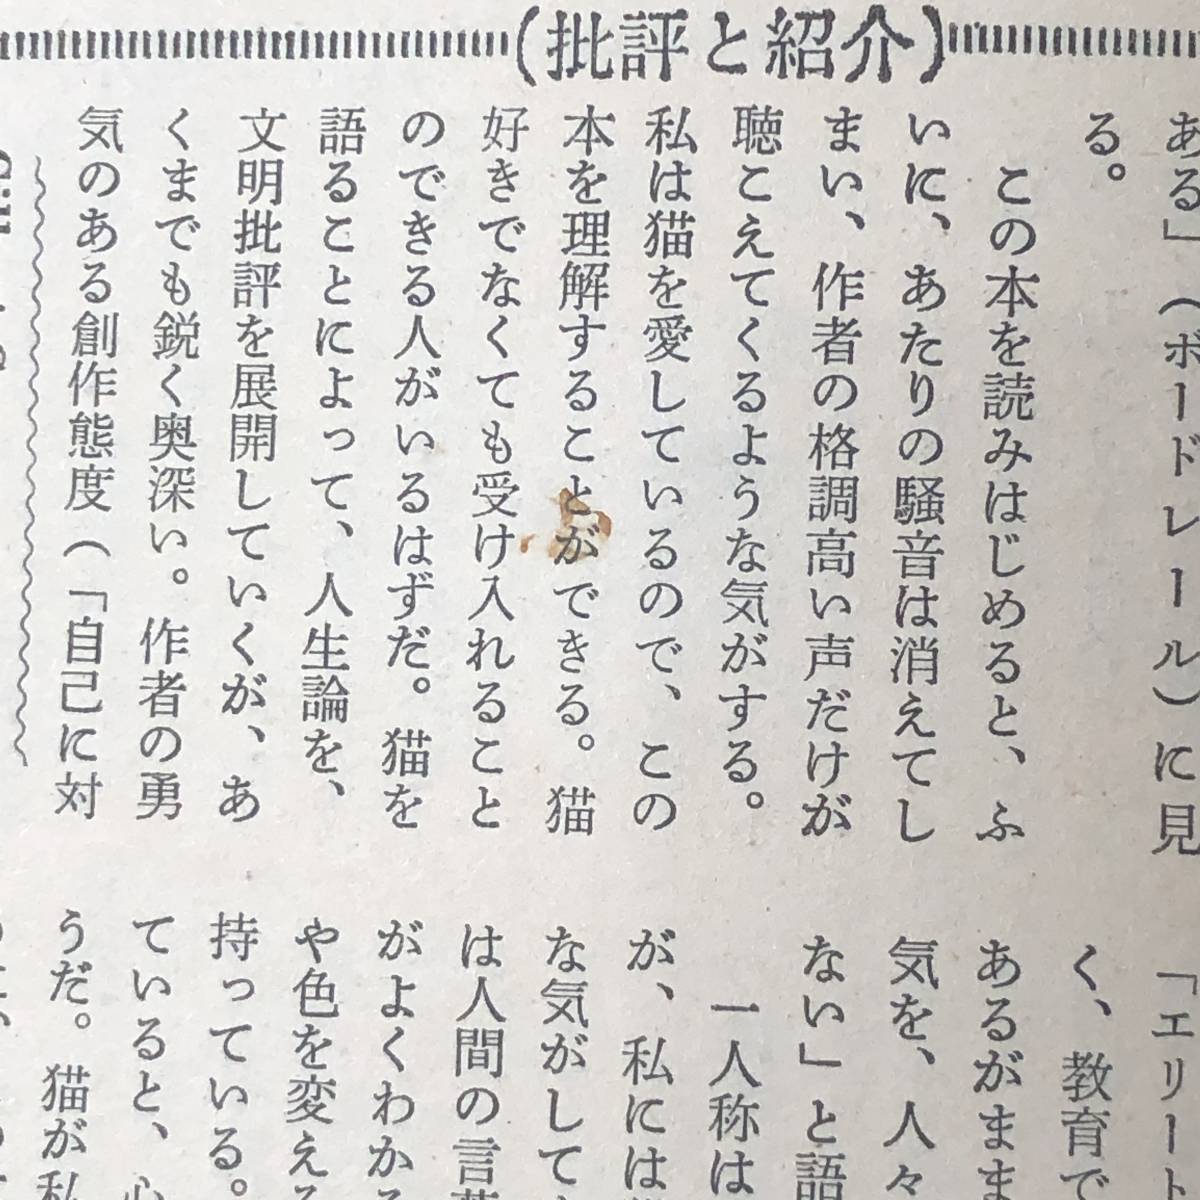 （批評と紹介）
ある」（ボードレール）に見
る。
この本を読みはじめると、ふ
いに、あたりの騒音は消えてし
まい、作者の格調高い声だけが
聴こえてくるような気がする。
私は猫を愛しているので、この
本を理解することができる。猫
好きでなくても受け入れること
のできる人がいるはずだ。猫を
語ることによって、人生論を、
文明批評を展開していくが、あ
くまでも鋭く奥深い。作者の勇
気のある創作態度（「自己に対
「エリート
く、教育で
あるがまま
気を、人々
ない」と語
一人称は
が、私には
な気がして
は人間の言葉
がよくわかる
や色を変える
持っている。
ていると、心
うだ。猫が私